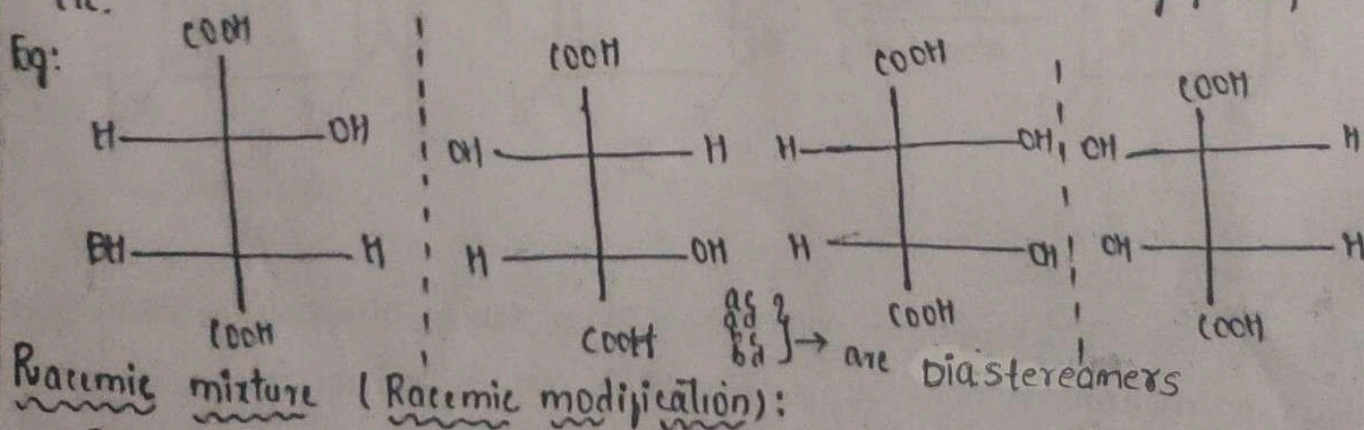 Eg:
COOH COOH COOH COOH
H OH OH H H OH OH H
OH H H OH H OH OH H
COOH COOH COOH COOH
→ are Diastereomers
Racemic mixture (Racemic modification):